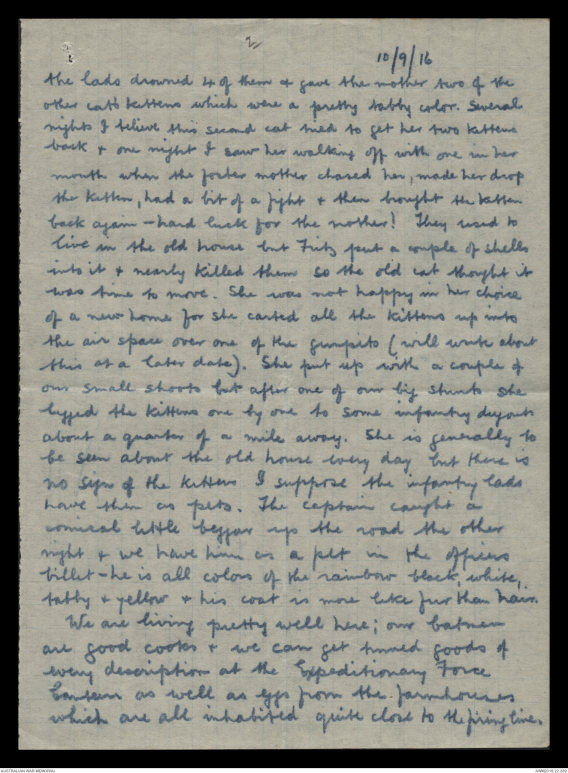 2/
10/9/16
the lads drowned 4 of them & gave the mother two of the
other cat's kittens which were a pretty tabby color. Several
nights I believe this second cat tried to get her two kittens
back & one night I saw her walking off with one in her
mouth when the foster mother chased her, made her drop
the kitten, had a bit of a fight & then brought the kitten
back again – hard luck for the mother! They used to
live in the old house but Fritz put a couple of shells
into it & nearly killed them so the old cat thought it
was time to move. She was not happy in her choice
of a new home for she carted all the kittens up into
the air space over one of the gunpits (will write about
this at a later date). She put up with a couple of
our small shoots but after one of our big stunts she
lugged the kittens one by one to some infantry dugouts
about a quarter of a mile away. She is generally to
be seen about the old house every day but there is
no sign of the kittens I suppose the infantry lads
have them as pets. The captain caught a
comical little beggar up the road the other
night & we have him as a pet in the officers
billet – he is all colors of the rainbow black, white,
tabby & yellow & his coat is more like fur than hair.
We are living pretty well here; our batmen
are good cooks & we can get tinned goods of
every description at the Expeditionary Force
Canteen as well as eggs from the farmhouses
which are all inhabited quite close to the firing line.
AUSTRALIAN WAR MEMORIAL